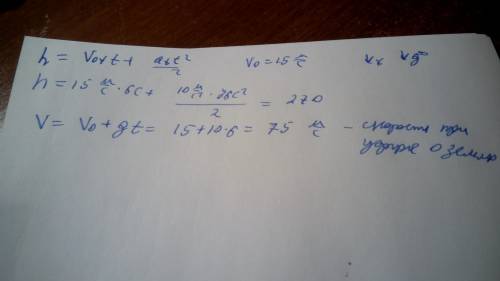 h = V₀ₓt + aₓt²/2 V₀ = 15 м/с
h = 15 м/с · 6с + 10 м/с² · 36с²/2 = 270
V = V₀ + gt = 15 + 10·6 = 75 м/с – скорость при
ударе о землю